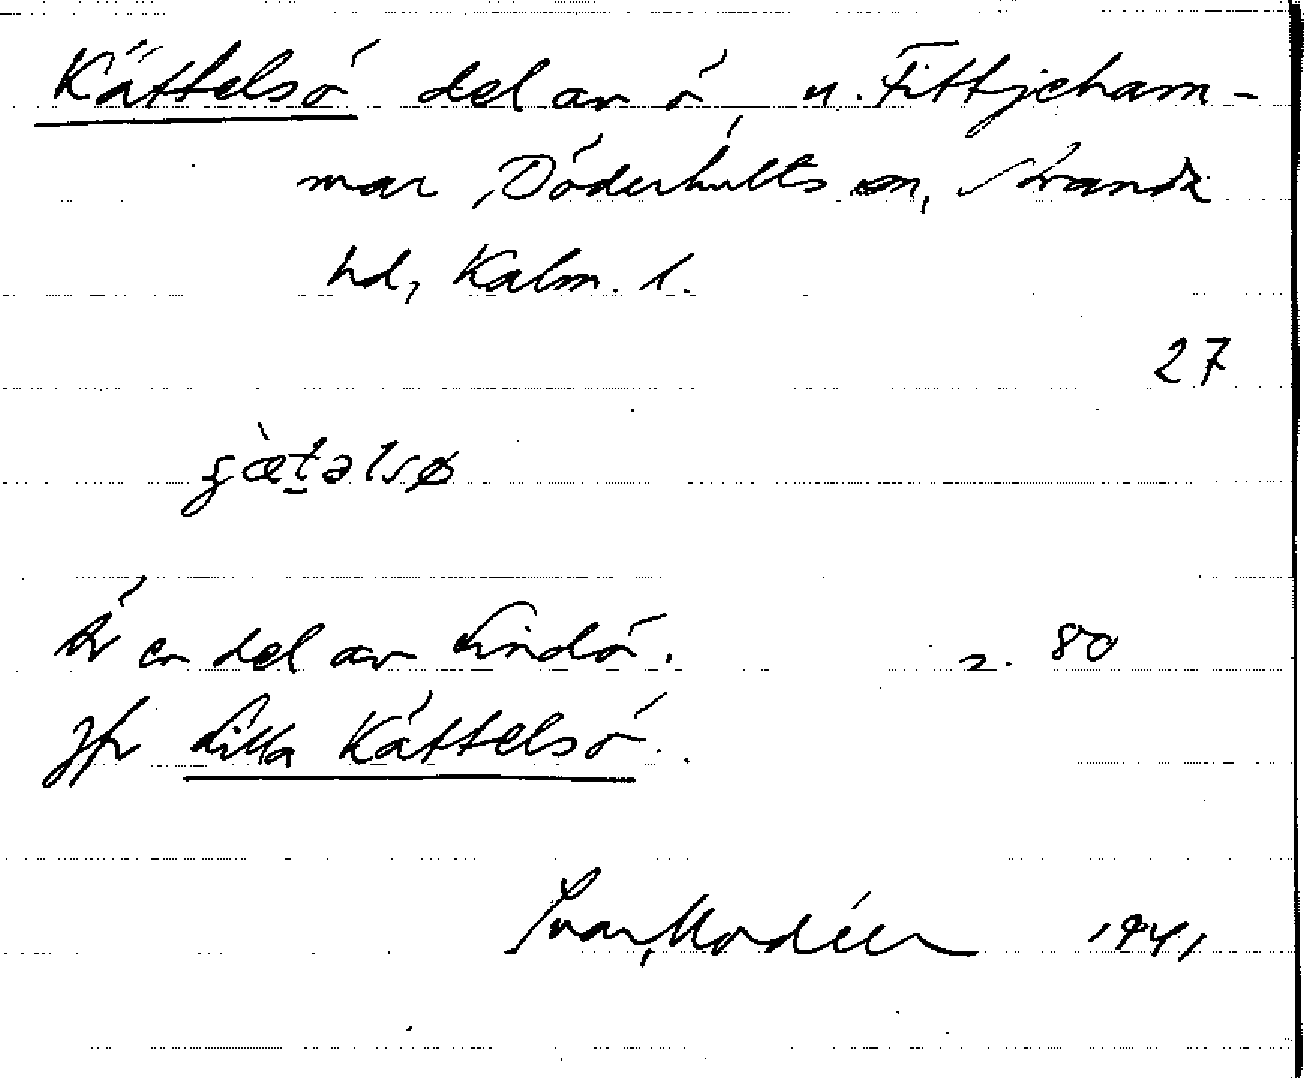 Kättelsö del av ö u. Fittjeham-
mar, Döderhults sn, Strands
hd, Kalm. l.
27
Är en del av Lindö. s. 80
Jfr Lilla Kättelsö.
Ivar Modéer 1941